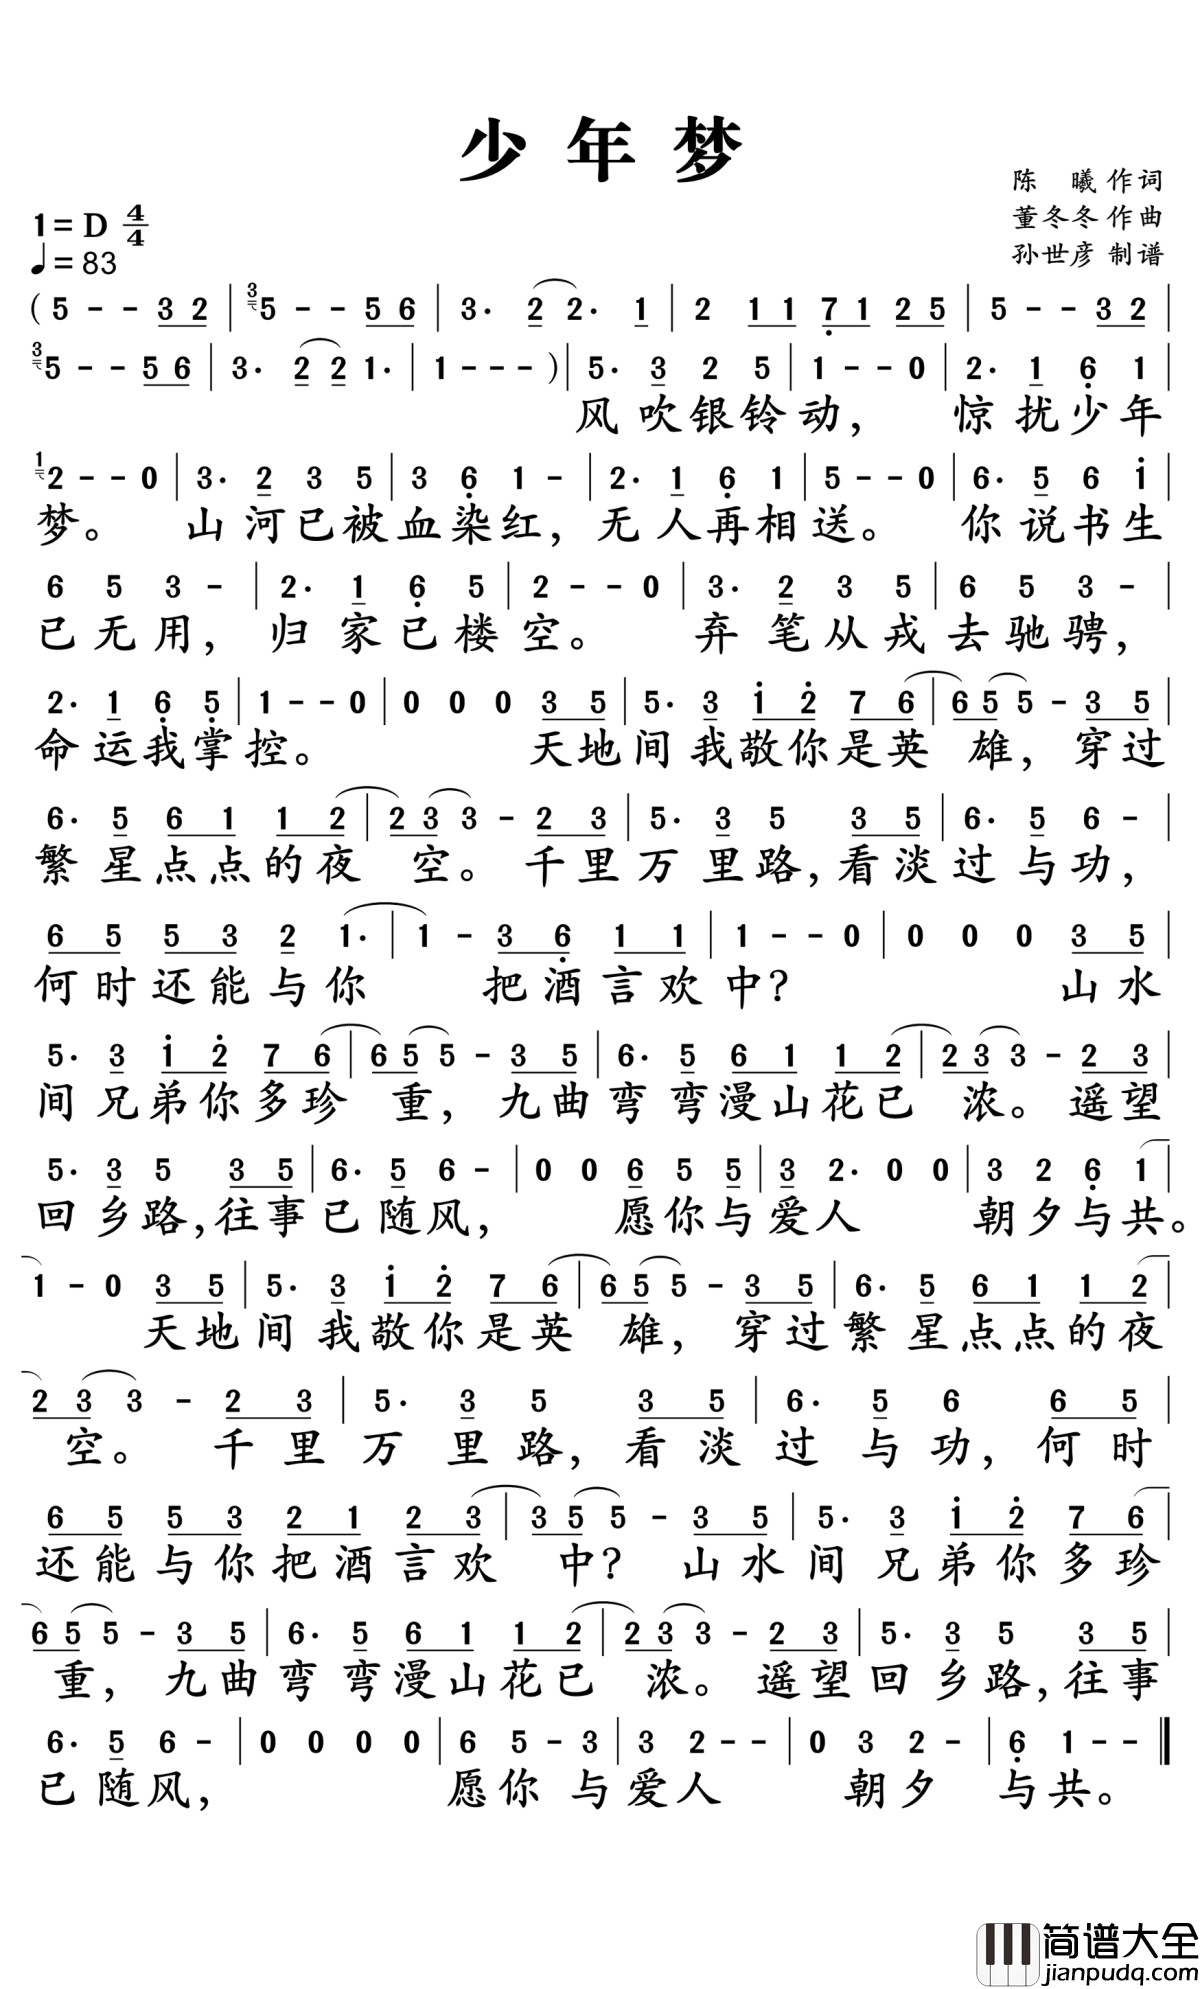 少年梦
陈 曦 作词
1=D 4/4
董冬冬 作曲
♩=83
孙世彦 制谱
( 5 - - 3 2 | 3 5 - - 5 6 | 3· 2 2· 1 | 2 1 1 7 1 2 5 | 5 - - 3 2 |
3 5 - - 5 6 | 3· 2 2 1· | 1 - - - ) | 5· 3 2 5 | 1 - - 0 | 2· 1 6 1 |
风吹银铃动， 惊扰少年
1 2 - - 0 | 3· 2 3 5 | 3 6 1 - | 2· 1 6 1 | 5 - - 0 | 6· 5 6 1 |
梦。 山河已被血染红，无人再相送。 你说书生
6 5 3 - | 2· 1 6 5 | 2 - - 0 | 3· 2 3 5 | 6 5 3 - |
已无用， 归家已楼空。 弃笔从戎去驰骋，
2· 1 6 5 | 1 - - 0 | 0 0 0 3 5 | 5· 3 1 2 7 6 | 6 5 5 - 3 5 |
命运我掌控。 天地间我敬你是英 雄，穿过
6· 5 6 1 1 2 | 2 3 3 - 2 3 | 5· 3 5 3 5 | 6· 5 6 - |
繁星点点的夜 空。千里万里路，看淡过与功，
6 5 5 3 2 1· | 1 - 3 6 1 1 | 1 - - 0 | 0 0 0 3 5 |
何时还能与你 把酒言欢中？ 山水
5· 3 1 2 7 6 | 6 5 5 - 3 5 | 6· 5 6 1 1 2 | 2 3 3 - 2 3 |
间兄弟你多珍 重，九曲弯弯漫山花已 浓。遥望
5· 3 5 3 5 | 6· 5 6 - | 0 0 6 5 5 | 3 2· 0 0 | 3 2 6 1 |
回乡路，往事已随风， 愿你与爱人 朝夕与共。
1 - 0 3 5 | 5· 3 1 2 7 6 | 6 5 5 - 3 5 | 6· 5 6 1 1 2 |
天地间我敬你是英 雄，穿过繁星点点的夜
2 3 3 - 2 3 | 5· 3 5 3 5 | 6· 5 6 6 5 |
空。千里万里路，看淡过与功，何时
6 5 5 3 2 1 2 3 | 3 5 5 - 3 5 | 5· 3 1 2 7 6 |
还能与你把酒言欢 中？山水间兄弟你多珍
6 5 5 - 3 5 | 6· 5 6 1 1 2 | 2 3 3 - 2 3 | 5· 3 5 3 5 |
重，九曲弯弯漫山花已 浓。遥望回乡路，往事
6· 5 6 - | 0 0 0 0 | 6 5 - 3 | 3 2 - - | 0 3 2 - | 6 1 - - ‖
已随风， 愿你与爱人 朝夕与共。
简谱大全
jianpudq.com